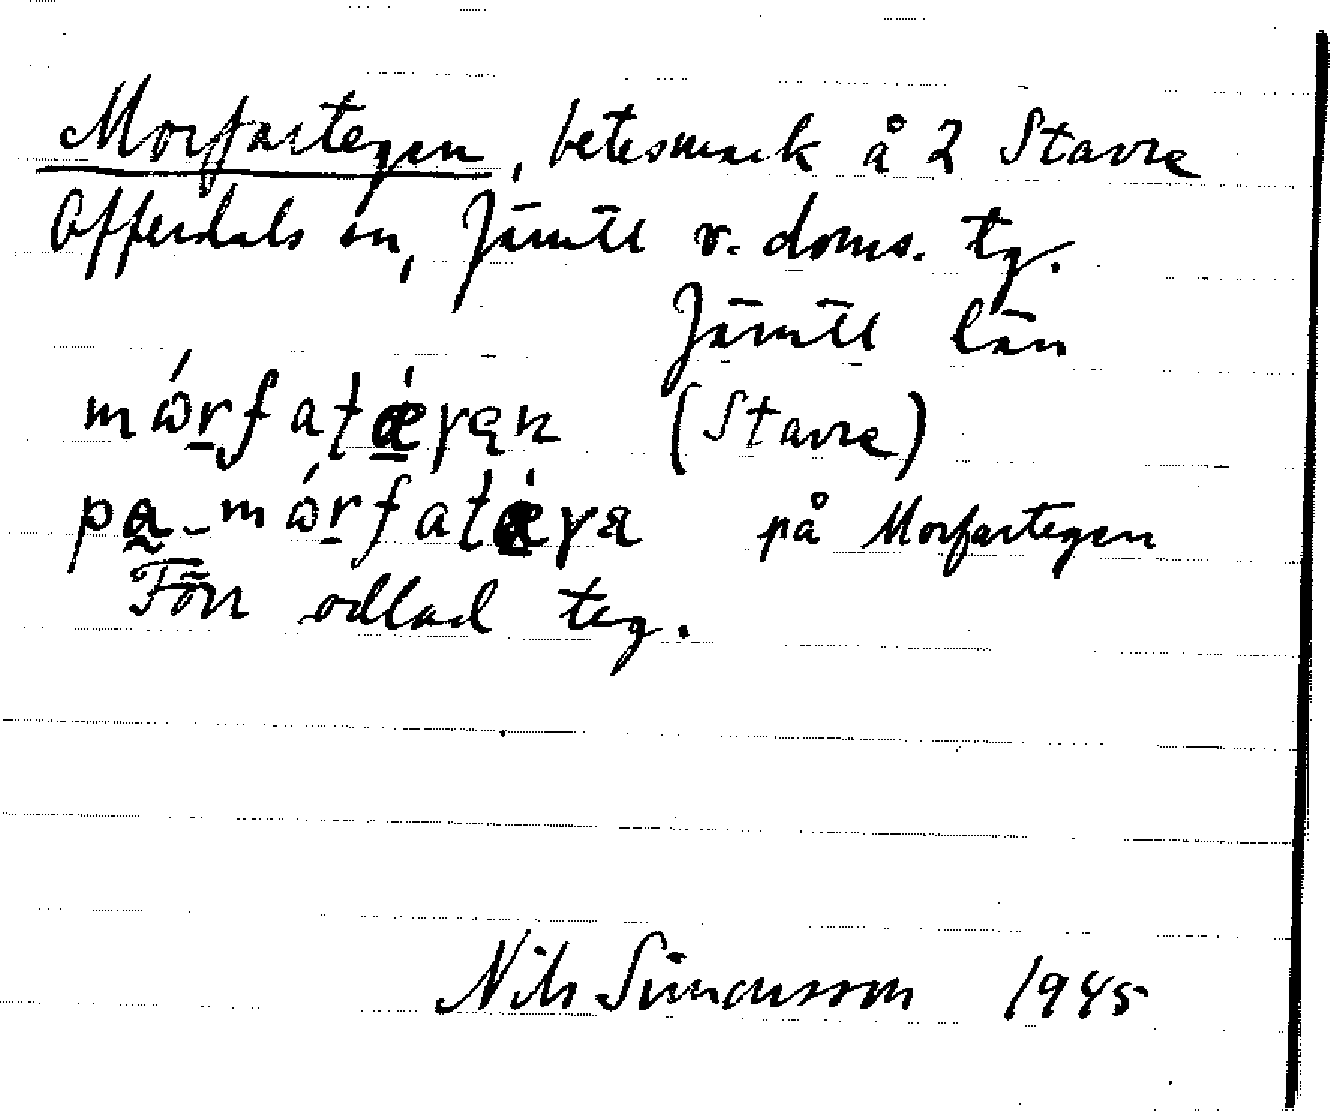 Morfartegen, betesmark å 2 Stavre
Offerdals sn, Jämtl v. doms. tg.
Jämtl län
(Stavre)
på Morfartegen
Förr odlad teg.
Nils Simonsson 1945